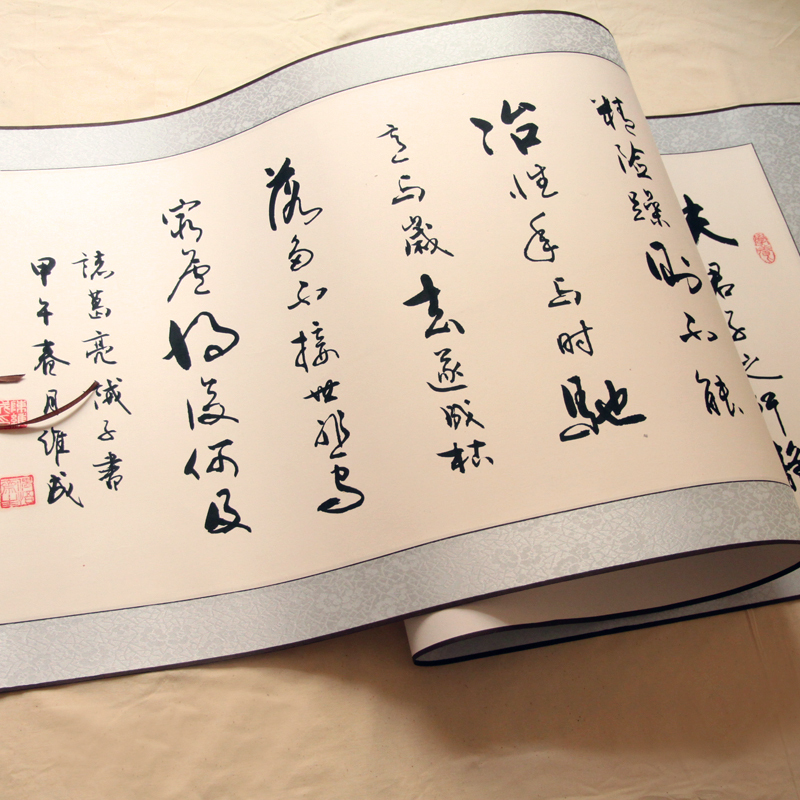 夫君子之行
精险躁则不能
冶性年与时驰
意与歲去遂成枯
落多不接世悲守
穷庐将復何及
諸葛亮诫子書
甲午春月维武